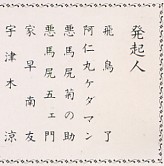 発起人
飛鳥了
阿仁丸ケダマン
悪馬尻菊の助
悪馬尻五ェ門
家早南友
宇津木涼